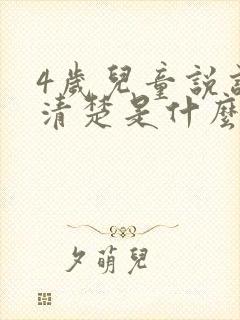 4歲兒童說
清楚是什麼
夕萌兒